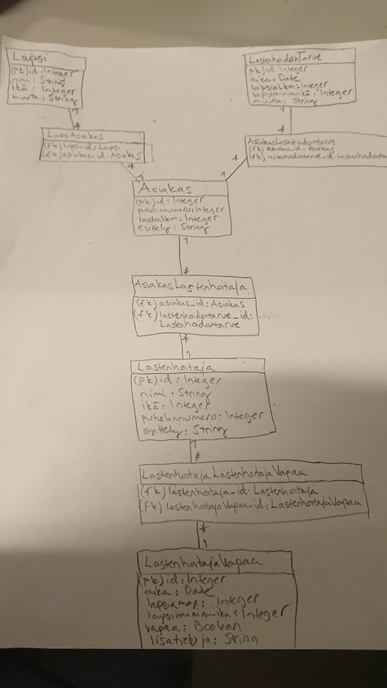 Lapsi
(pk) id: Integer
nimi: String
ikä: Integer
muuta: String
LastenhadonTarve
(pk) id: Integer
aika: Date
lapsialkm: Integer
lapsiminimikä: Integer
muuta: String
1
1
*
*
LapsiAsiakas
(fk) lapsi_id: Lapsi
(fk) asiakas_id: Asiakas
AsiakasLastenhoidontarve
(fk) asiakas_id: Asiakas
(fk) lastenhoidontarve_id: Lastenhoidonta
*
*
1
1
Asiakas
(pk) id: Integer
puhelinnumero: Integer
lastenlkm: Integer
esittely: String
1
*
AsiakasLastenhoitaja
(fk) asiakas_id: Asiakas
(fk) lastenhoidontarve_id:
Lastenhoidontarve
*
1
Lastenhoitaja
(pk) id: Integer
nimi: String
ikä: Integer
puhelinnumero: Integer
esittely: String
1
*
LastenhoitajaLastenhoitajaVapaa
(fk) lastenhoitaja_id: Lastenhoitaja
(fk) lastenhoitajaVapaa_id: LastenhoitajaVapaa
*
1
LastenhoitajaVapaa
(pk) id: Integer
aika: Date
lapsiamax: Integer
lapsiminimiika: Integer
vapaa: Boolean
: String